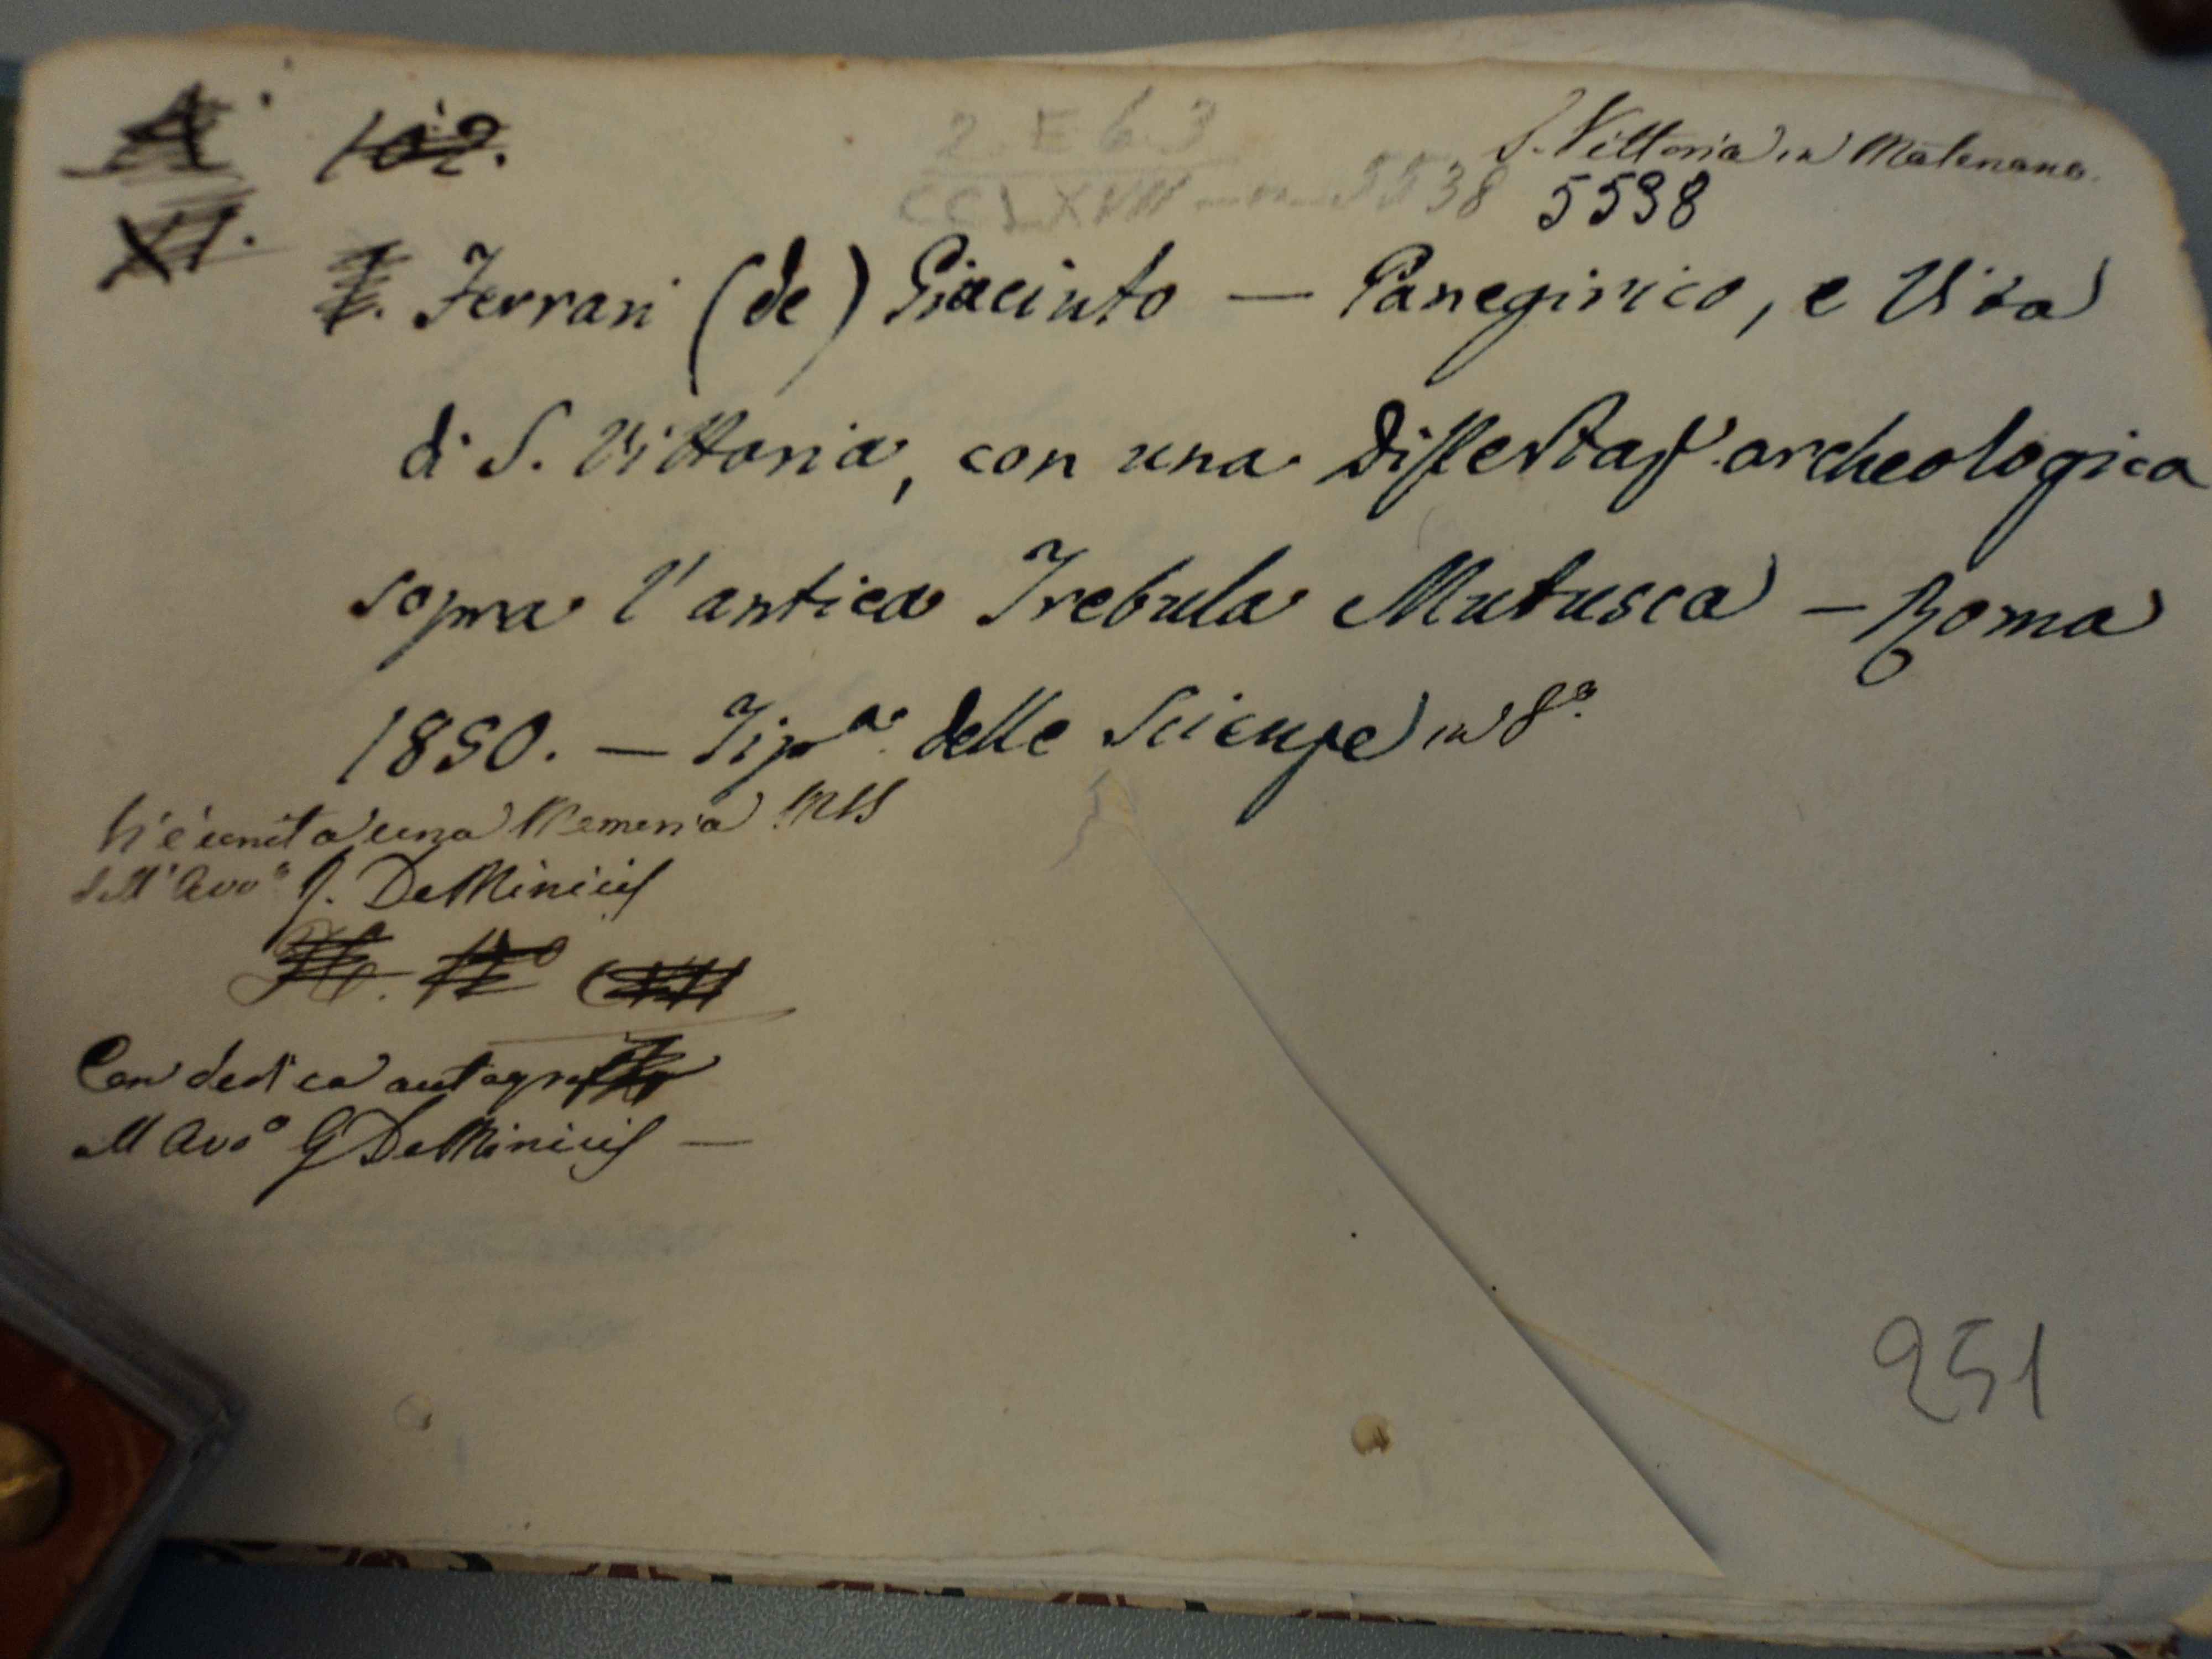 A 102.
2 E 63
S. Vittoria in Matenano.
CCLXVIII — n — 5538 5538
XI.
Ferrari (de) Giacinto — Panegirico, e Vita
di S. Vittoria, con una Dissertaz. archeologica
sopra l'antica Trebula Mutusca — Roma
1850. — Tip.a delle Scienze in 8°.
Vi è unita una Memoria MSS
dell'Avv° G. De Minicis
Con dedica autografa
all Avv° G De Minicis —
251